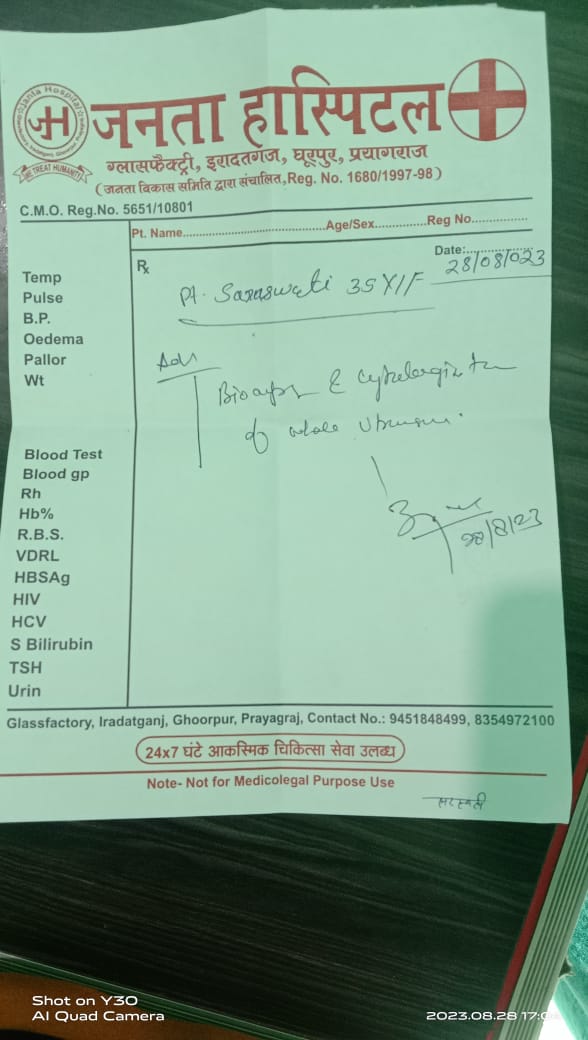 Janta Hospital
JH
WE TREAT HUMANITY
जनता हास्पिटल
ग्लासफैक्ट्री, इरादतगंज, घूरपुर, प्रयागराज
(जनता विकास समिति द्वारा संचालित, Reg. No. 1680/1997-98)
C.M.O. Reg.No. 5651/10801
Pt. Name.............................Age/Sex..............Reg No...............
Date:...............
28/08/023
Rx
Pt. Saraswati 35 Y/F
Adv
of whole Uterus.
28/8/23
Temp
Pulse
B.P.
Oedema
Pallor
Wt
Blood Test
Blood gp
Rh
Hb%
R.B.S.
VDRL
HBSAg
HIV
HCV
S Bilirubin
TSH
Urin
Glassfactory, Iradatganj, Ghoorpur, Prayagraj, Contact No.: 9451848499, 8354972100
24x7 घंटे आकस्मिक चिकित्सा सेवा उलब्ध
Note- Not for Medicolegal Purpose Use
सरस्वती
Shot on Y30
AI Quad Camera
2023.08.28 17:0